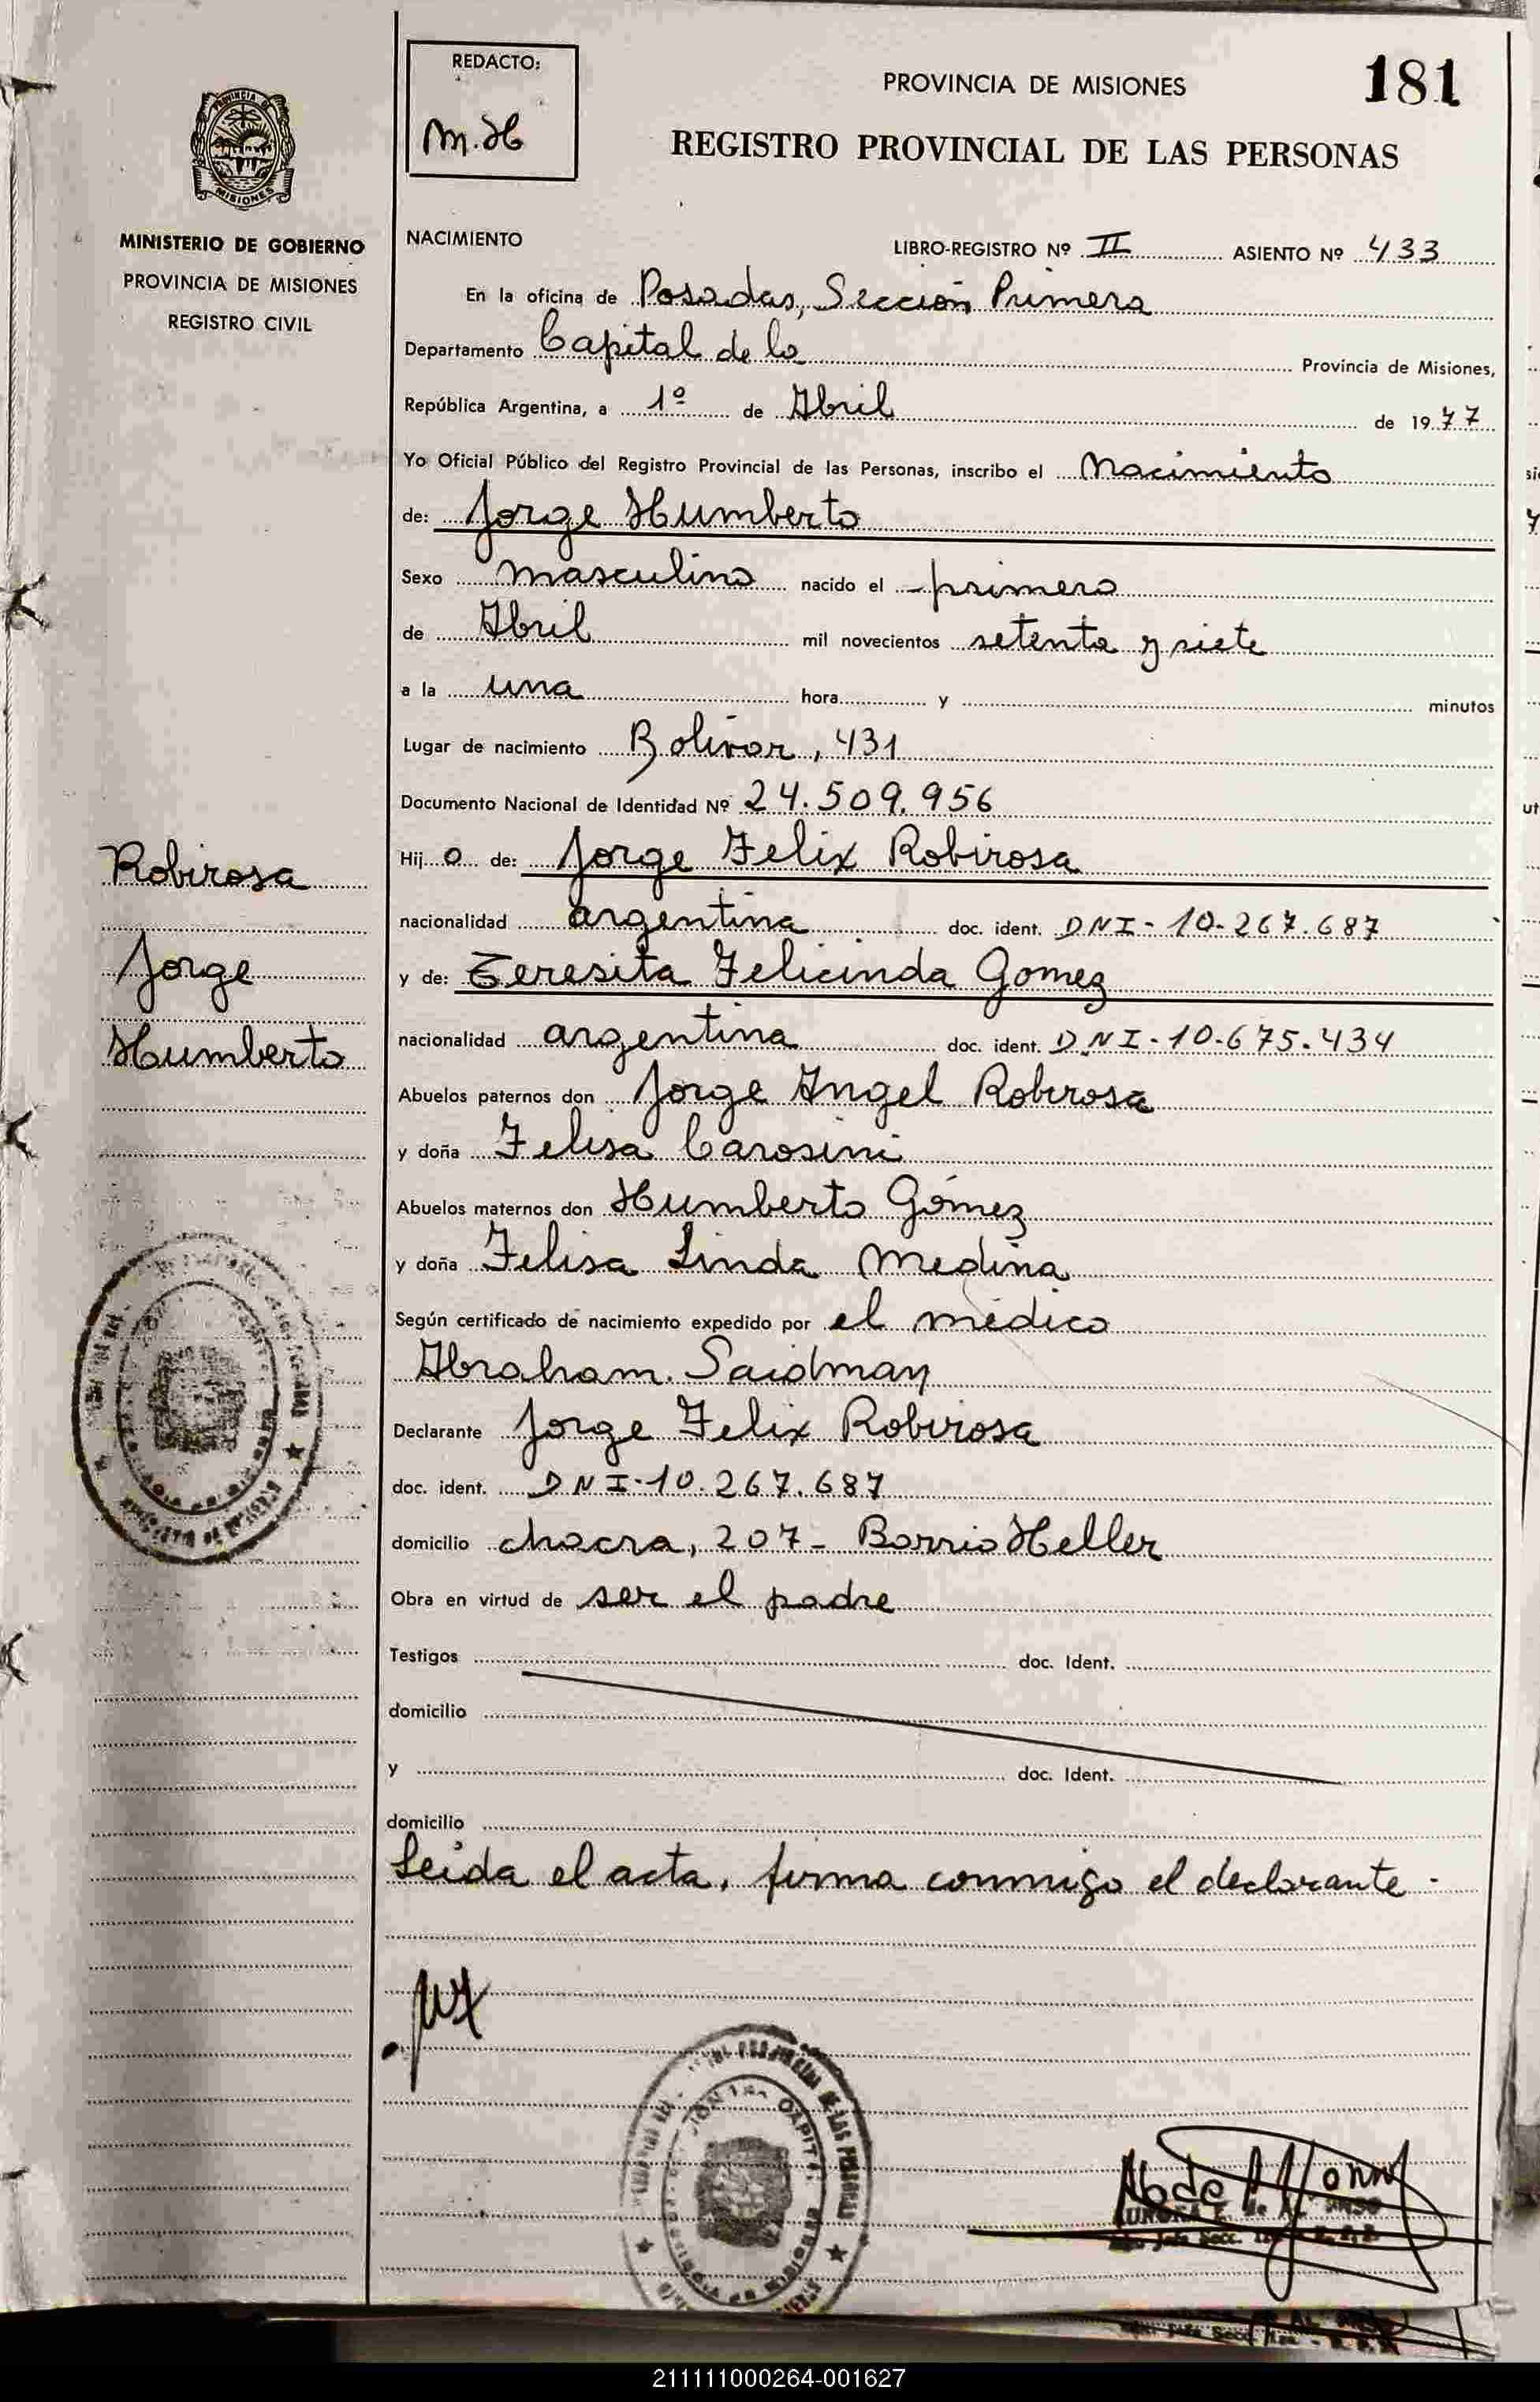 REDACTO:
M.H
PROVINCIA DE MISIONES
181
REGISTRO PROVINCIAL DE LAS PERSONAS
PROVINCIA DE
MISIONES
MINISTERIO DE GOBIERNO
PROVINCIA DE MISIONES
REGISTRO CIVIL
NACIMIENTO LIBRO-REGISTRO Nº II ASIENTO Nº 433
En la oficina de Posadas, Sección Primera
Departamento Capital de la Provincia de Misiones,
República Argentina, a 1º de Abril de 1977
Yo Oficial Público del Registro Provincial de las Personas, inscribo el Nacimiento
de: Jorge Humberto
Sexo masculino nacido el primero
de Abril mil novecientos setenta y siete
a la una hora y minutos
Lugar de nacimiento Bolivar, 431
Documento Nacional de Identidad Nº 24.509.956
Hijo de: Jorge Felix Robirosa
nacionalidad argentina doc. ident. DNI-10.267.687
y de: Teresita Felicinda Gomez
nacionalidad argentina doc. ident. DNI-10.675.434
Abuelos paternos don Jorge Angel Robirosa
y doña Felisa Carosini
Abuelos maternos don Humberto Gómez
y doña Felisa Linda Medina
Según certificado de nacimiento expedido por el médico
Abraham Saidman
Declarante Jorge Felix Robirosa
doc. ident. DNI-10.267.687
domicilio chacra, 207- Barrio Heller
Obra en virtud de ser el padre
Testigos doc. Ident.
domicilio
y doc. Ident.
domicilio
Leida el acta, firma conmigo el declarante.-
Robirosa
Jorge
Humberto
211111000264-001627